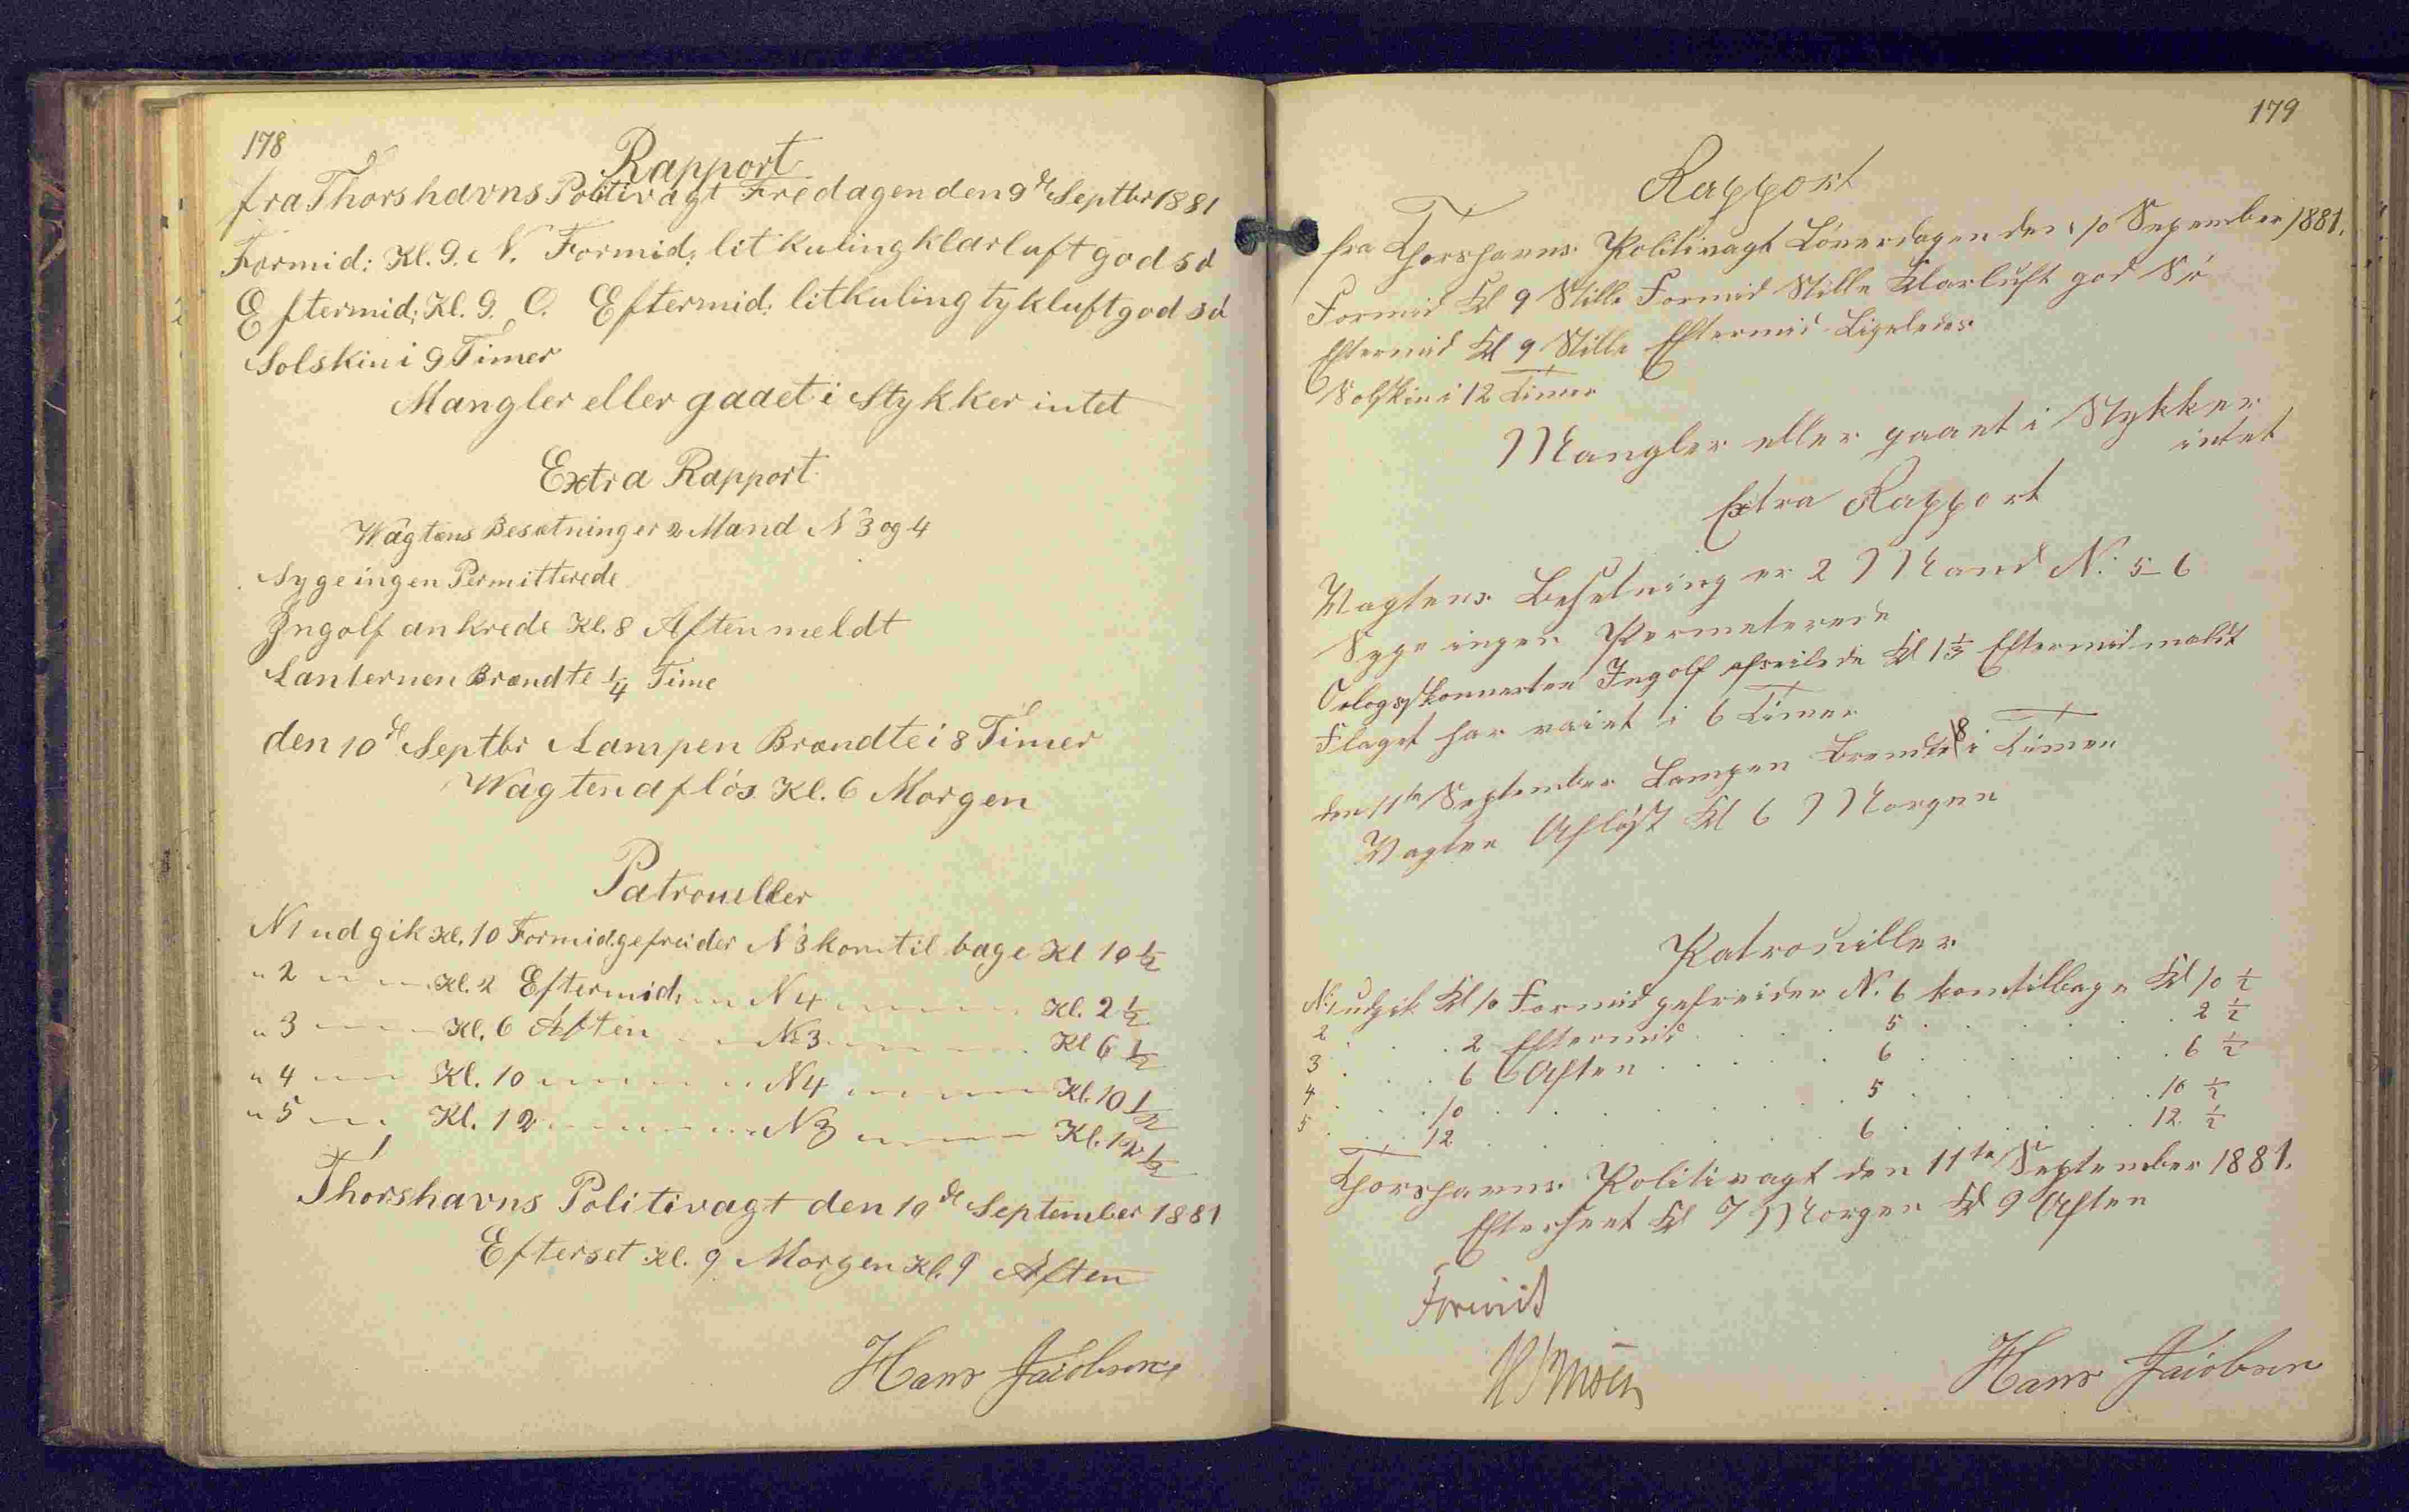 178
Rapport
fra Thorshavns Politivagt Fredagen den 9de Septbr 1881
Formid: Kl. 9. N. Formid; litkuling klarluft god sö
Eftermid; Kl. 9. O. Eftermid: litkuling tykluft god sö
Solskin i 9 Timer
Mangler eller gaaet i Stykker intet
Extra Rapport
Wagtens Besætning er 2 Mand N 3 og 4
Syge ingen Permitterede
Ingolf ankrede Kl. 8 Aften meldt
Lanternen Brændte 1/4 Time
den 10de Septbr Lampen Brændte i 8 Timer
Wagten aflös. Kl. 6 Morgen
Patrouller
N 1 udgik Kl. 10 Formid. gefreider N 3 kom til bage Kl 10 1/2
" 2 — — Kl. 2 Eftermid, — N 4 — — — Kl. 2 1/2
" 3 — — Kl. 6 Aften — — N 3 — — — Kl 6 1/2
" 4 — — Kl. 10 — — — N 4 — — — Kl. 10 1/2
" 5 — — Kl. 12 — — — N 3 — — — Kl. 12 1/2
Thorshavns Politivagt den 10de September 1881
Efterset Kl. 9 Morgen Kl. 9 Aften
Hans Jacobsen
179
Rapport
fra Thorshavns Politivagt Löverdagen den 10 September 1881.
Formid Kl 9 Stille Formid Stille Klarluft god Sö
Eftermid Kl 9 Stille Eftermid Ligeledes
Solskin i 12 Timer
Mangler eller gaaet i Stykker
intet
Extra Rapport
Vagtens Besetning er 2 Mand N: 5-6
Syge ingen Permeterede
Orlogsskonnerten Ingolf afseilede Kl 1 1/3 Eftermid meldt
Flaget har vaiet i 6 Timer
den 11te September Lampen brendte i 8 Timer
Vagten Aflöst Kl 6 Morgen
Patrouiller
N: 1 udgik Kl 10 Formid gefreider N. 6 kom tilbage Kl 10 1/2
2 . . . 2 Eftermid . . . . 5 . . . . . 2 1/2
3 . . . 6 Aften . . . . . 6 . . . . . 6 1/2
4 . . . 10 . . . . . . . 5 . . . . . 10 1/2
5 . . . 12 . . . . . . . 6 . . . . . 12 1/2
Thorshavns Politivagt den 11te September 1881.
Efterseet Kl 7 Morgen Kl 9 Aften
Hans Jacobsen